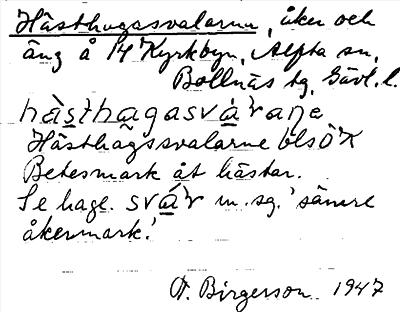 Hästhagasvalarna, åker och
äng å 14 Kyrkbyn, Alfta sn,
Bollnäs tg, Gävl. l.
hàsthagasvárane
Hästhagsvalarne blsÖK
Betesmark åt hästar.
Se hage. svár m. sg. 'sämre
åkermark.'
A. Birgerson 1947